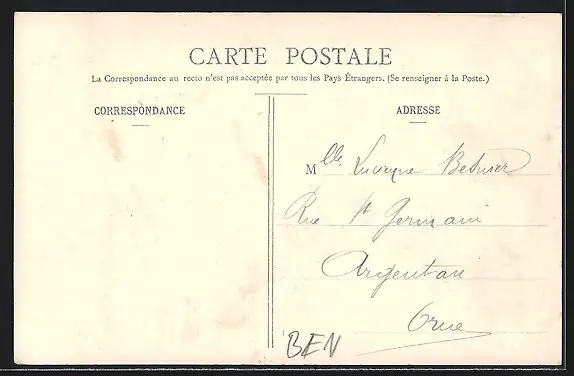 CARTE POSTALE
La Correspondance au recto n'est pas acceptée par tous les Pays Étrangers. (Se renseigner à la Poste.)
CORRESPONDANCE
ADRESSE
Mlle
Rue St Germain
Argentan
Orne
BEN